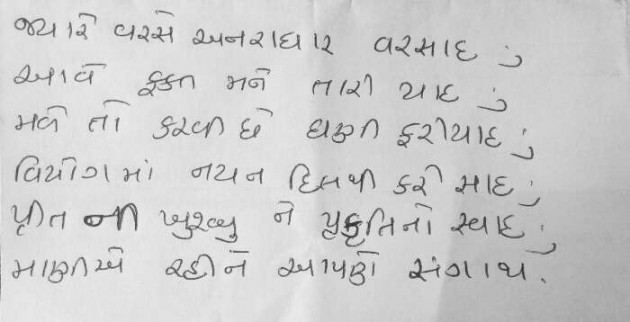 જ્યારે વરસે અનરાધાર વરસાદ ;
આવે ફક્ત મને તારી યાદ ;
મળે તો કરવી છે ઘણી ફરીયાદ ;
વિયોગમાં નયન દિલથી કરી સાદ ;
પ્રીત ની ખુશ્બુ ને પ્રકૃતિનો સ્વાદ ;
માણીએ રહીને આપણે સંગાથ .